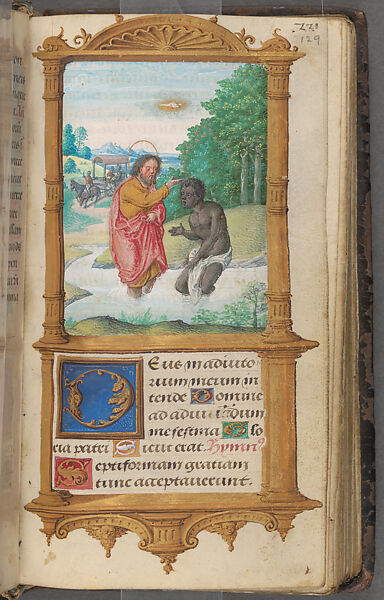 221
129
Deus in adiuto
rium meum in
tende Domine
ad adiuuandum
me festina Glo
ria patri Sicut erat Hymnus
Septiformam gratiam
tunc acceptauerunt.